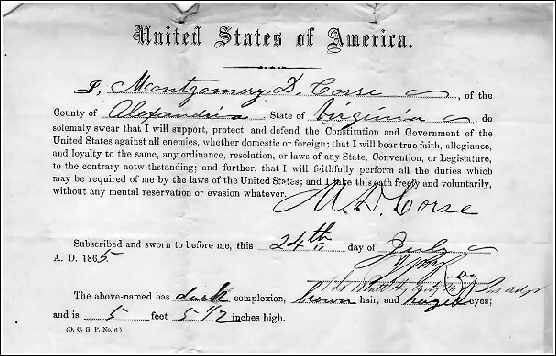 United States of America.
I, Montgomery D. Corse, of the
County of Alexandria State of Virginia do
solemnly swear that I will support, protect and defend the Constitution and Government of the
United States against all enemies, whether domestic or foreign; that I will bear true faith, allegiance,
and loyalty to the same, any ordinance, resolution, or laws of any State, Convention, or Legislature,
to the contrary notwithstanding; and further, that I will faithfully perform all the duties which
may be required of me by the laws of the United States; and I take this oath freely and voluntarily,
without any mental reservation or evasion whatever.
M. D. Corse
Subscribed and sworn to before me, this 24th day of July
A. D. 1865
The above-named has dark complexion, brown hair, and hazel eyes;
and is 5 feet 5 1/2 inches high.
(O. C. G. P. No. 6.)